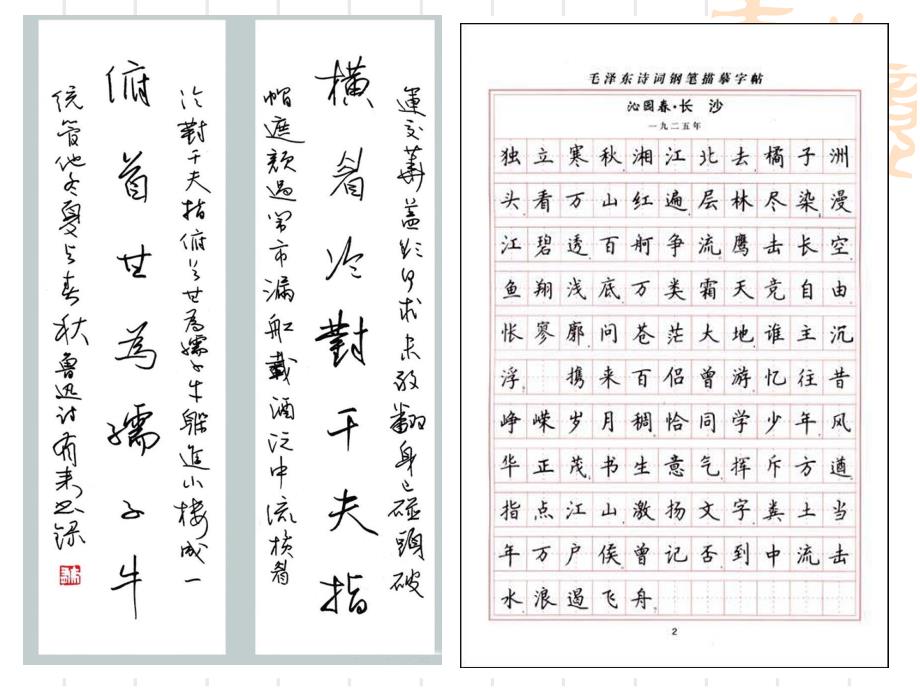 運交華蓋欲何求未敢翻身已碰頭破
横眉冷對千夫指
帽遮顏過鬧市漏船載酒泛中流横眉
冷對千夫指俯首甘為孺子牛躲進小樓成一
俯首甘為孺子牛
統管他冬夏与春秋魯迅詩
毛泽东诗词钢笔描摹字帖
沁园春·长 沙
一九二五年
独立寒秋湘江北去橘子洲
头看万山红遍层林尽染漫
江碧透百舸争流鹰击长空
鱼翔浅底万类霜天竞自由
怅寥廓问苍茫大地谁主沉
浮 携来百侣曾游忆往昔
峥嵘岁月稠恰同学少年风
华正茂书生意气挥斥方遒
指点江山激扬文字粪土当
年万户侯曾记否到中流击
水浪遏飞舟
2